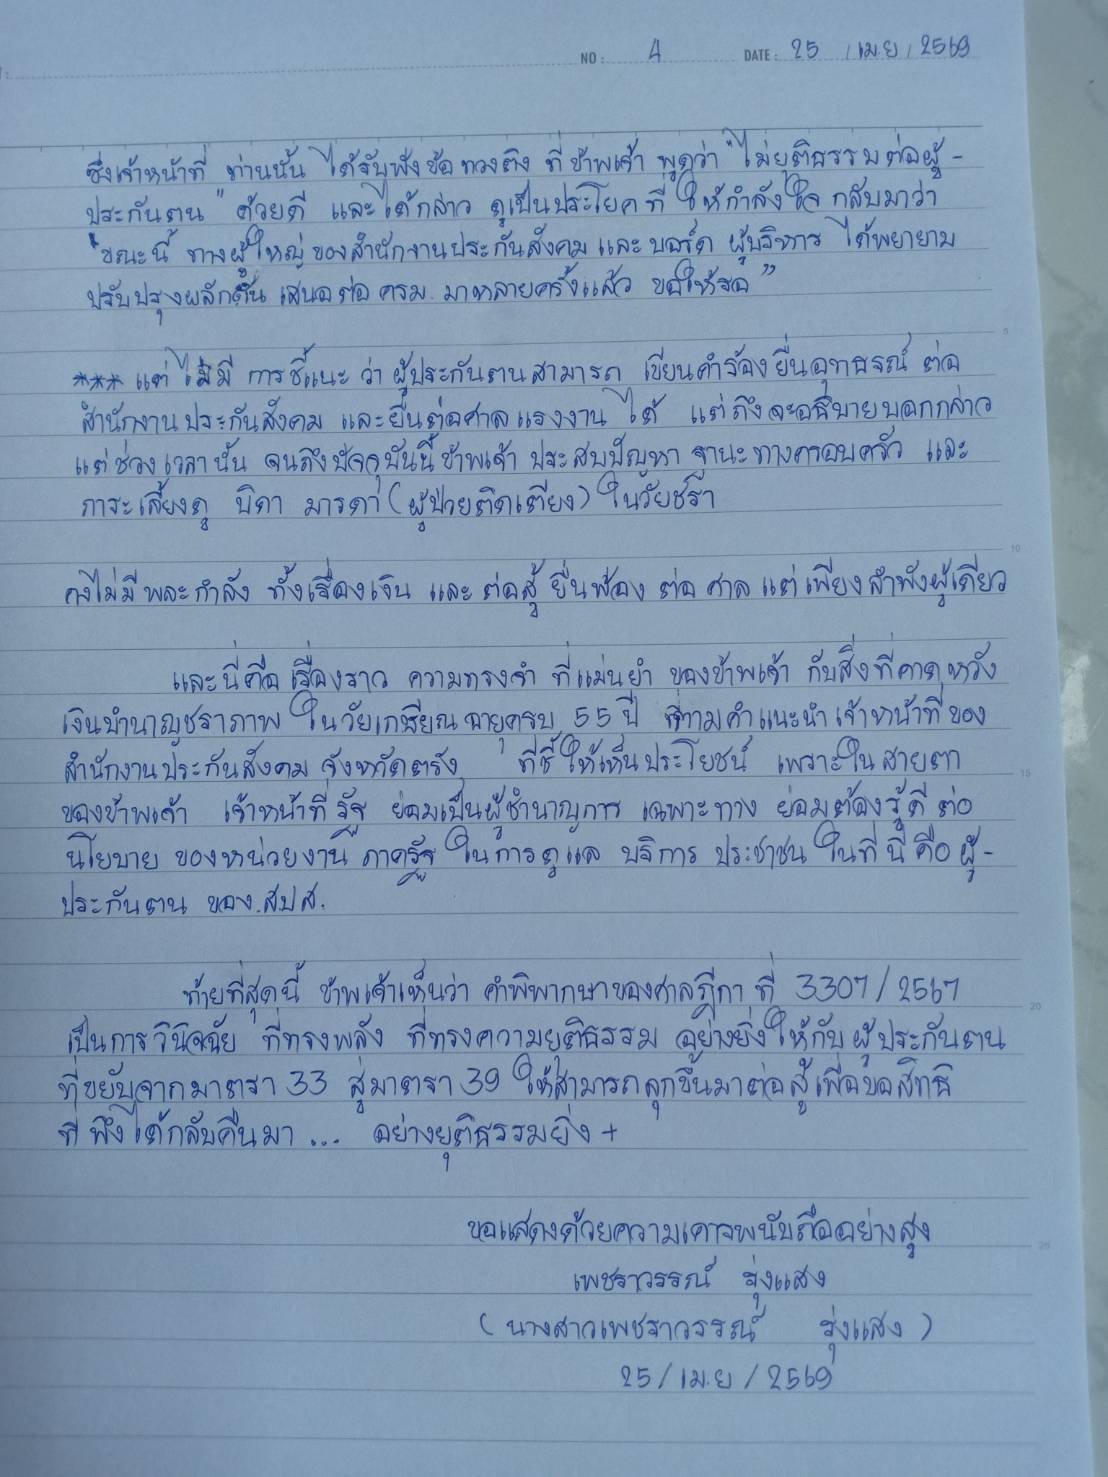 NO : 4 DATE : 25 / เม.ย / 2569
ซึ่งเจ้าหน้าที่ ท่านนั้น ได้รับฟังข้อทวงติง ที่ข้าพเจ้า พูดว่า "ไม่ยุติธรรมต่อผู้-
ประกันตน" ด้วยดี และได้กล่าว ดูเป็นประโยคที่ ให้กำลังใจ กลับมาว่า
"ขณะนี้ ทางผู้ใหญ่ของสำนักงานประกันสังคมและบอร์ด ผู้บริหาร ได้พยายาม
ปรับปรุงผลักดัน เสนอต่อ ครม. มาหลายครั้งแล้ว ขอให้รอ"
*** แต่ ไม่มี การชี้แนะ ว่า ผู้ประกันตนสามารถ เขียนคำร้องยื่นอุทธรณ์ ต่อ
สำนักงานประกันสังคม และยื่นต่อศาลแรงงาน ได้ แต่ถึงจะอธิบายบอกกล่าว
แต่ช่วงเวลานั้น จนถึงปัจจุบันนี้ ข้าพเจ้า ประสบปัญหา ฐานะทางครอบครัว และ
ภาระเลี้ยงดู บิดา มารดา (ผู้ป่วยติดเตียง) ในวัยชรา
คงไม่มีพละกำลัง ทั้งเรื่องเงิน และ ต่อสู้ ยื่นฟ้อง ต่อ ศาล แต่เพียงลำพังผู้เดียว
และนี่คือ เรื่องราว ความทรงจำ ที่แม่นยำ ของข้าพเจ้า กับสิ่งที่คาดหวัง
เงินบำนาญชราภาพ ในวัยเกษียณอายุครบ 55 ปี ตามคำแนะนำเจ้าหน้าที่ของ
สำนักงานประกันสังคม จังหวัดตรัง ที่ชี้ให้เห็นประโยชน์ เพราะในสายตา
ของข้าพเจ้า เจ้าหน้าที่รัฐ ย่อมเป็นผู้ชำนาญการ เฉพาะทาง ย่อมต้องรู้ดีต่อ
นโยบาย ของหน่วยงาน ภาครัฐ ในการดูแล บริการ ประชาชน ในที่นี้ คือ ผู้-
ประกันตน ของ.สปส.
ท้ายที่สุดนี้ ข้าพเจ้าเห็นว่า คำพิพากษาของศาลฎีกา ที่ 3307/2567
เป็นการวินิจฉัย ที่ทรงพลัง ที่ทรงความยุติธรรม อย่างยิ่งให้กับผู้ประกันตน
ที่ขยับจากมาตรา 33 สู่มาตรา 39 ให้สามารถลุกขึ้นมาต่อสู้เพื่อขอสิทธิ
ที่พึงได้กลับคืนมา ... อย่างยุติธรรมยิ่ง +
ขอแสดงด้วยความเคารพนับถืออย่างสูง
เพชราวรรณ์ รุ่งแสง
(นางสาวเพชราวรรณ์ รุ่งแสง)
25/เม.ย/2569